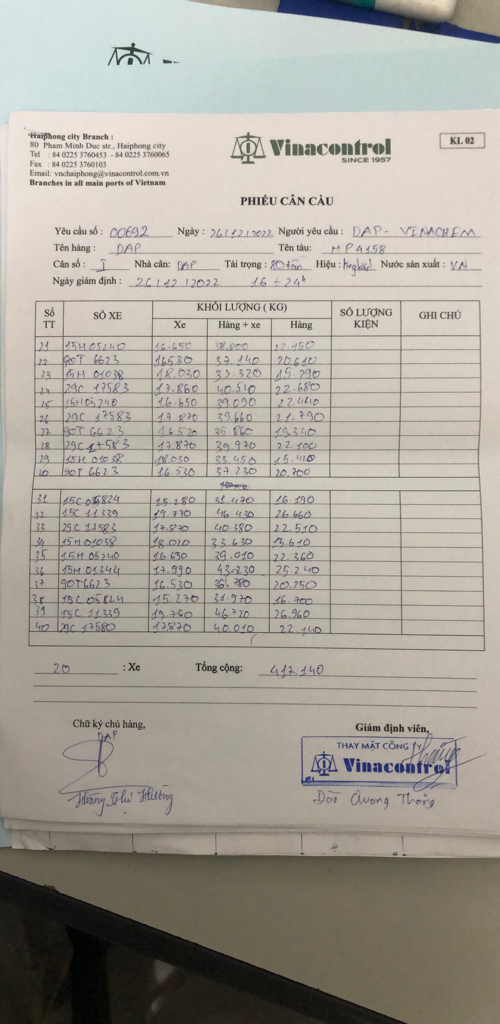 Haiphong city Branch :
80 Pham Minh Duc str., Haiphong city
Tel : 84 0225 3760453 - 84 0225 3760065
Fax : 84 0225 3760103
Email: vnchaiphong@vinacontrol.com.vn
Branches in all main ports of Vietnam
Vinacontrol
SINCE 1957
KL 02
PHIẾU CÂN CẦU
Yêu cầu số : 00692 Ngày : 26/12/2022 Người yêu cầu : DAP - VINACHEM
Tên hàng : DAP Tên tàu: MP4158
Cân số : I Nhà cân: DAP Tải trọng : 80 tấn Hiệu : Nước sản xuất : VN
Ngày giám định : 26/12/2022 16 ÷ 24h
Số TT SỐ XE KHỐI LƯỢNG ( KG) SỐ LƯỢNG KIỆN GHI CHÚ
Xe Hàng + xe Hàng
21 15H 05240 16.650 38.800 22.150
22 90T 6623 16530 37.140 20.610
23 15H 01038 18.030 33.320 15.290
24 29C 17583 17.860 40.540 22.680
25 15H05240 16.650 39.090 22.440
26 29C 17583 17.870 39.660 21.790
27 90T 6623 16.520 35.860 19.340
28 29C 17583 17.870 39.970 22.100
29 15H 01038 18.030 33.450 15.420
30 90T 6623 16.530 37.230 20.700
31 15C 05824 15.280 31.470 16.190
32 15C 11339 19.770 46.430 26.660
33 29C 17583 17.870 40.380 22.510
34 15H 01038 18.020 33.630 15.610
35 15H 05240 16.650 39.010 22.360
36 15H 01344 17.990 43.230 25.240
37 90T6623 16.530 36.780 20.250
38 15C 05824 15.270 31.970 16.700
39 15C 11339 19.760 46720 26.960
40 29C 17580 17870 40.010 22.140
20 : Xe Tổng cộng: 417.140
Chữ ký chủ hàng,
DAP
Giám định viên,
THAY MẶT CÔNG TY
Vinacontrol
Hoàng Thị Hường
Đào Quang Thắng